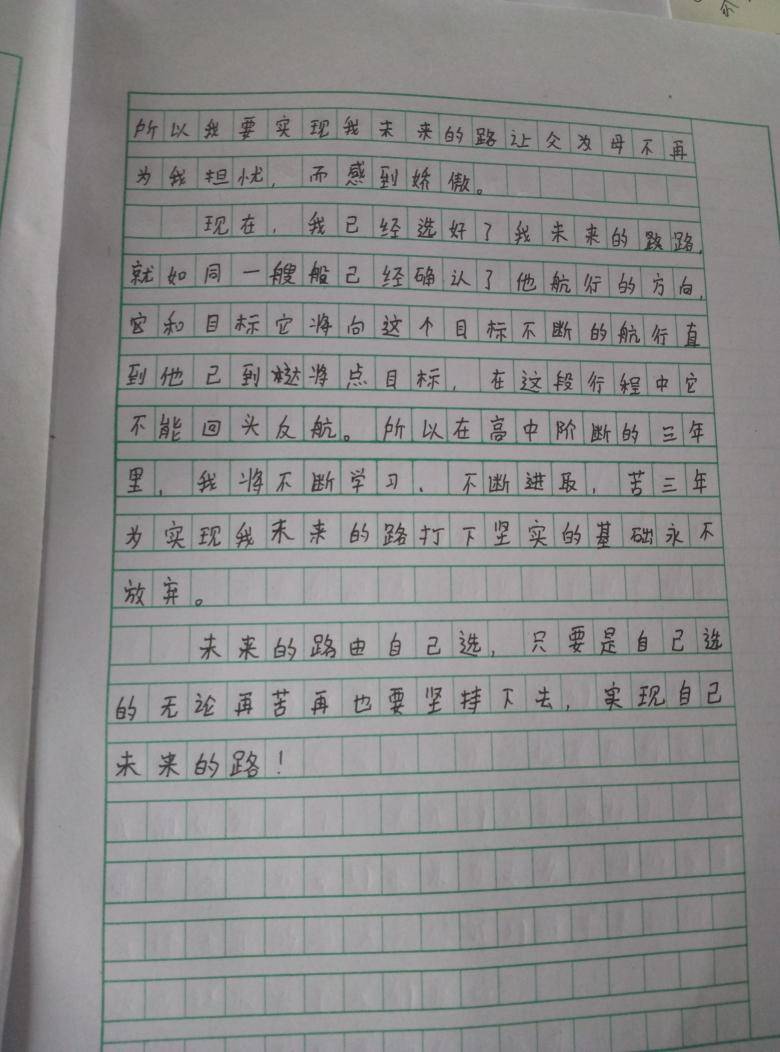 所以我要实现我未来的路让父为母不再
为我担忧，而感到娇傲。
现在，我已经选好了我未来的路路，
就如同一艘船已经确认了他航行的方向，
它和目标它将向这个目标不断的航行直
到他已到达将点目标，在这段行程中它
不能回头反航。所以在高中阶断的三年
里，我将不断学习、不断进取，苦三年
为实现我未来的路打下坚实的基础永不
放弃。
未来的路由自己选，只要是自己选
的无论再苦再也要坚持下去，实现自己
未来的路！